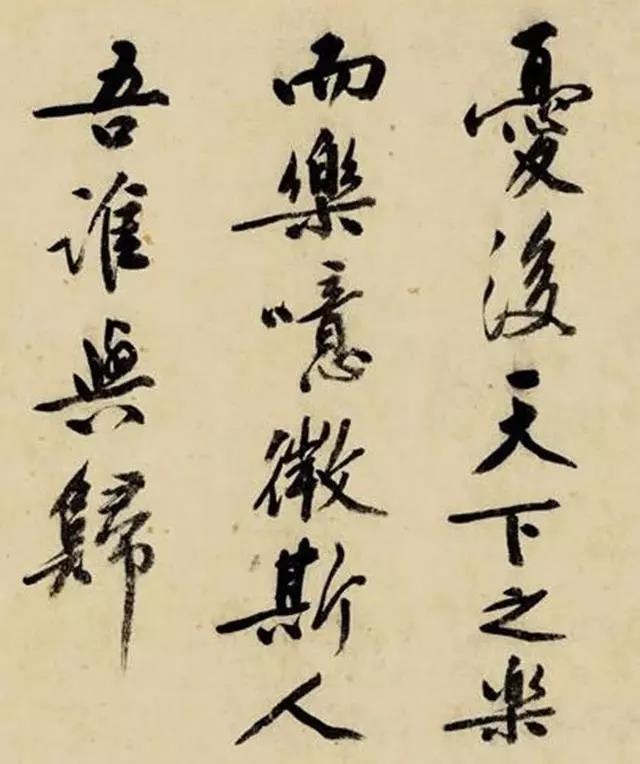 憂後天下之楽
而樂噫微斯人
吾誰與歸